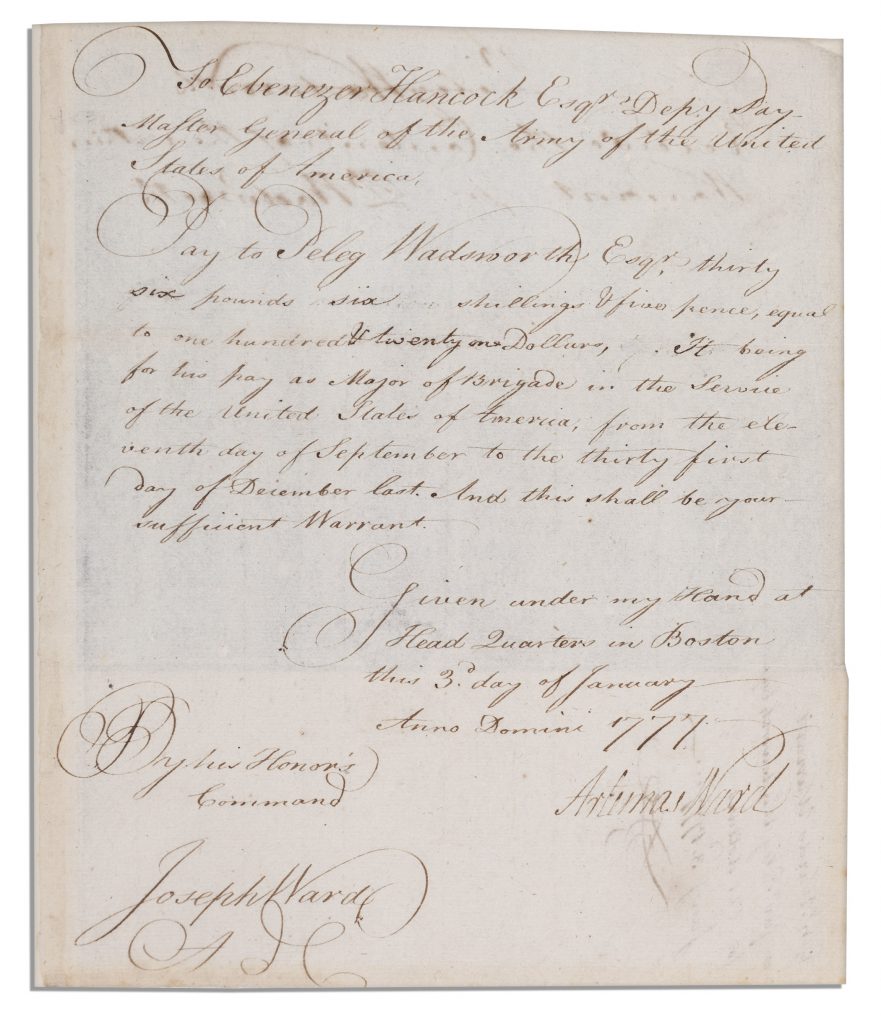 To Ebenezer Hancock Esqr. Depy Pay
Master General of the Army of the United
States of America,
Pay to Peleg Wadsworth Esqr, thirty
six pounds six shillings & five pence, equal
to one hundred & twenty one Dollars, It being
for his pay as Major of Brigade in the Service
of the United States of America, from the ele-
venth day of September to the thirty first
day of December last. And this shall be your
sufficient Warrant.
Given under my Hand at
Head Quarters in Boston
this 3d. day of January
Anno Domini 1777.
By his Honor's
Command
Artemas Ward
Joseph Ward